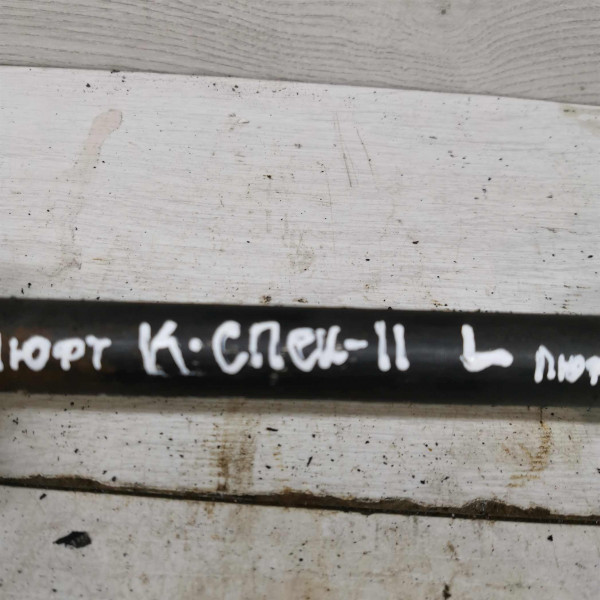 люфт К·СПЕК-11 L люф